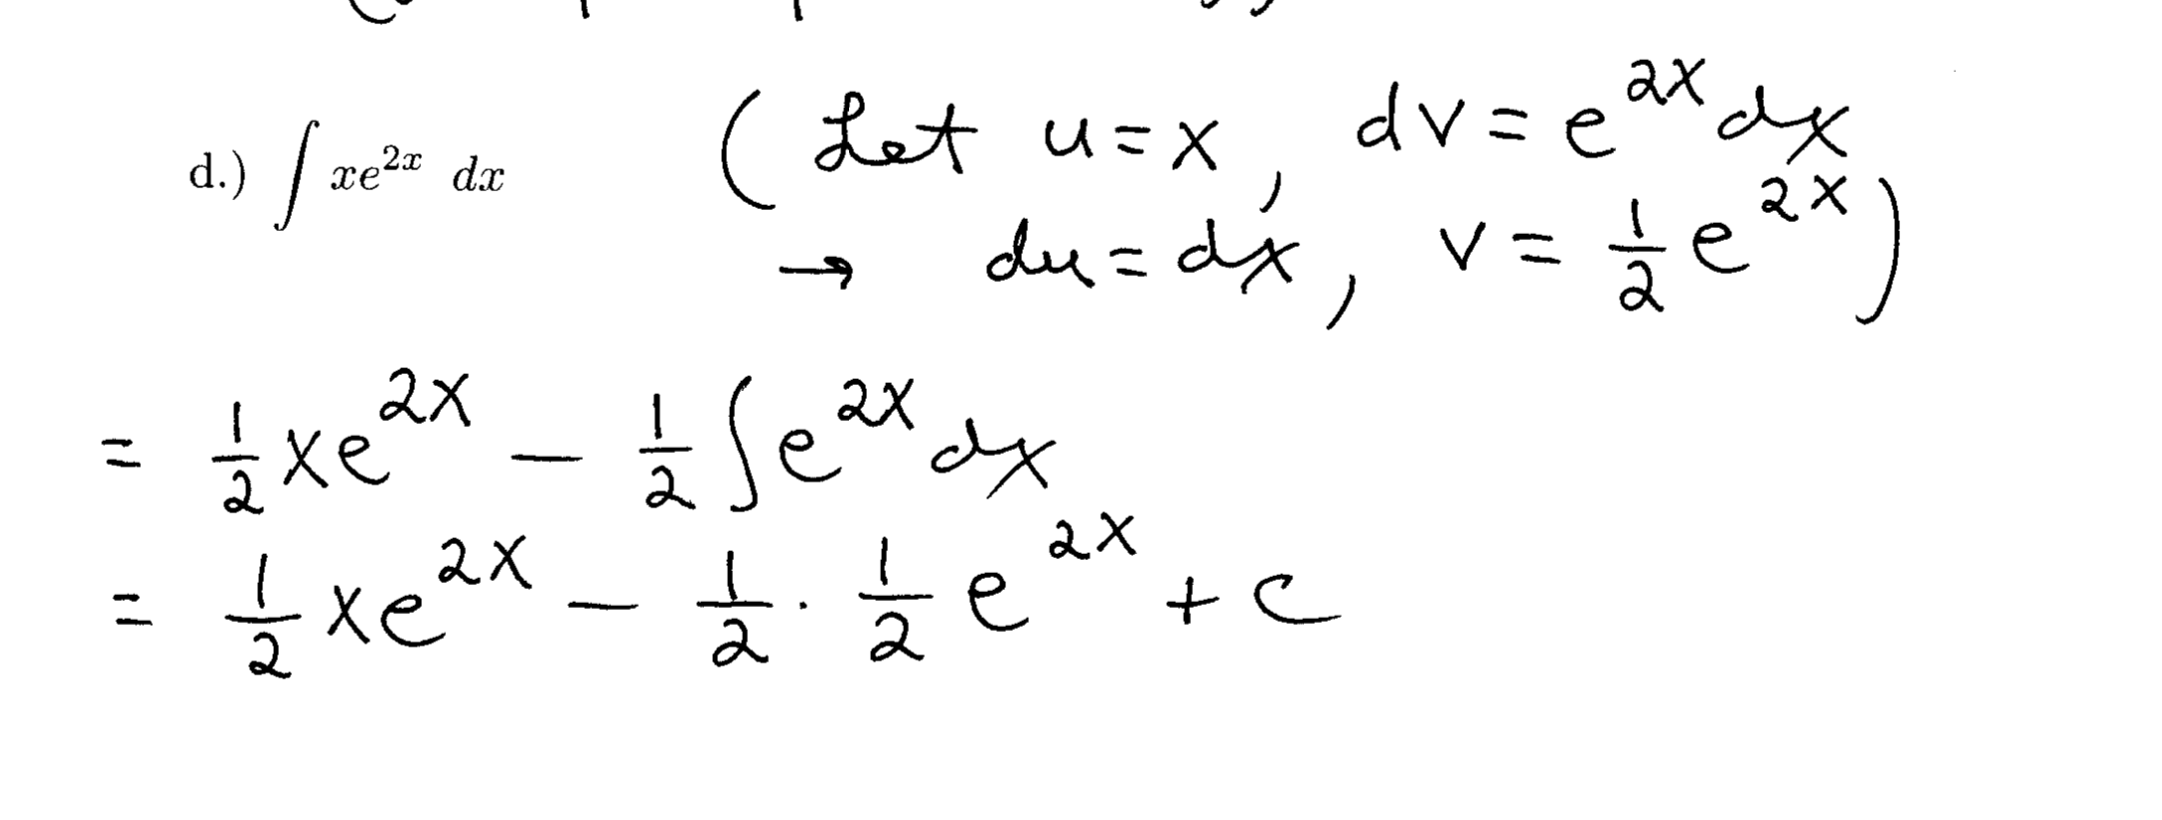 d.) ∫ xe^{2x} dx ( Let u = x , dv = e^{2x} dx
→ du = dx , v = \frac{1}{2} e^{2x} )
= \frac{1}{2} xe^{2x} - \frac{1}{2} ∫ e^{2x} dx
= \frac{1}{2} xe^{2x} - \frac{1}{2} · \frac{1}{2} e^{2x} + C